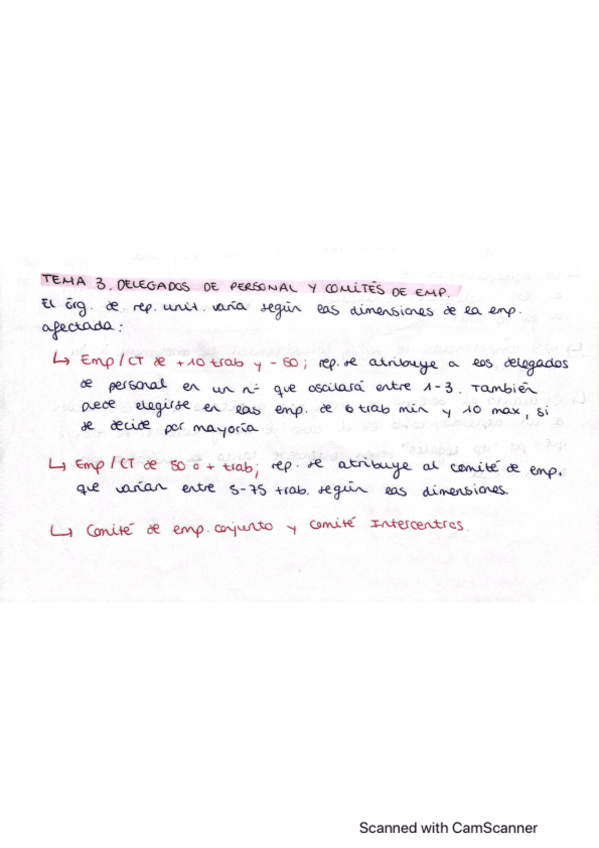 TEMA 3. DELEGADOS DE PERSONAL Y COMITÉS DE EMP.
El órg. de rep. unit. varía según las dimensiones de la emp.
afectada:
↳ Emp/CT de +10 trab y -50; rep. se atribuye a los delegados
de personal en un nº que oscilará entre 1-3. También
pede elegirse en las emp. de 6 trab min y 10 max, si
se decide por mayoría
↳ Emp/CT de 50 o + trab; rep. se atribuye al comité de emp.
que varían entre 5-75 trab. según las dimensiones.
↳ Comité de emp. conjunto y Comité Intercentros.
Scanned with CamScanner